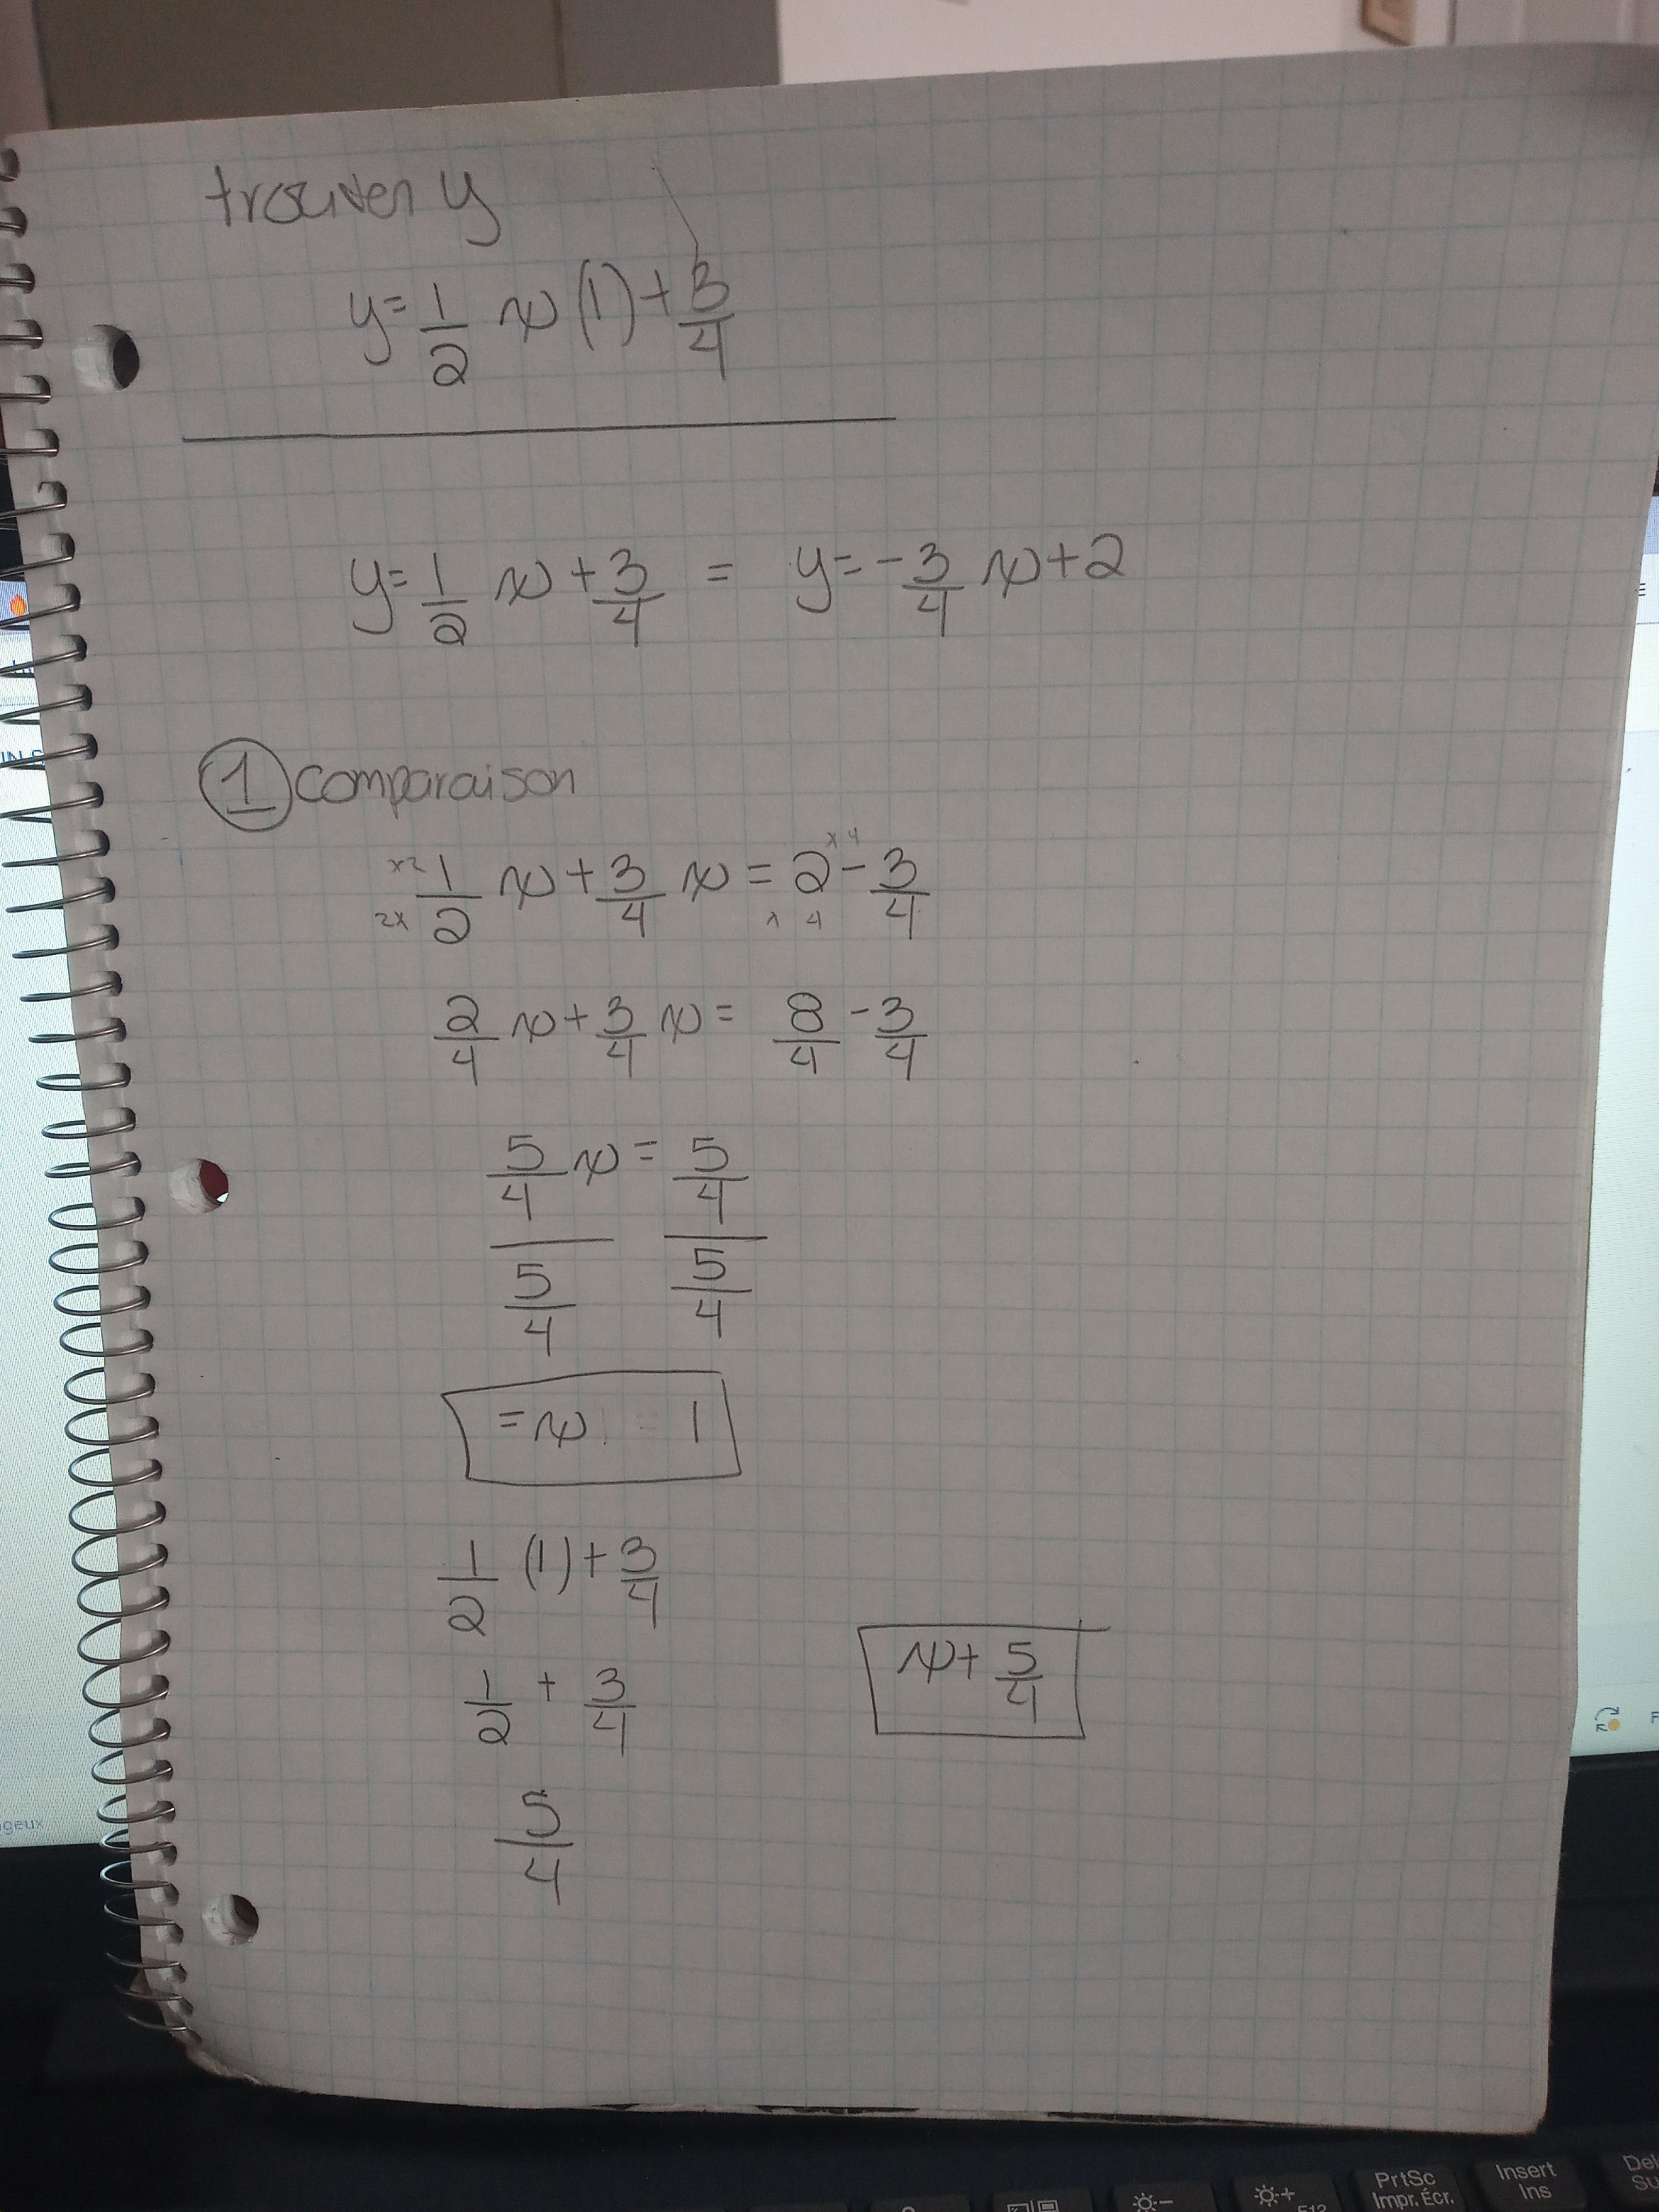 trouver y
y=1/2 x (1)+3/4
y=1/2 x+3/4 = y=-3/4 x+2
① comparaison
x2 x4
1/2 x+3/4 x=2-3/4
2x x 4
2/4 x+3/4 x= 8/4-3/4
5/4 x= 5/4
5/4 5/4
=x = 1
1/2 (1)+3/4
x+ 5/4
1/2 + 3/4
5/4
geux
PrtSc
Impr. Écr.
Insert
Ins
F12
Del